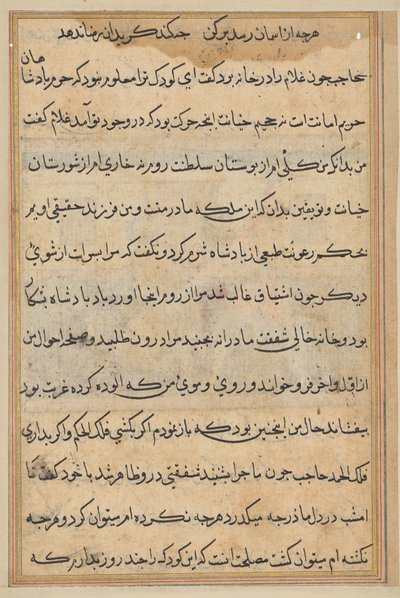 هرچه از آسان رسد بر کن جیکند کر بدان رضا ندهد
حاجب چون غلام را در خانه برد کفت ای کودک ترا معلوم نبود که حرم پادشاهان
حریم امانت است نه جحیم خیانت این چه حرکت بود که در وجود تو آمد غلام کفت
من بدانکه من کلی ام از بوستان سلطنت روم نه خاری ام از شورستان
خیانت و تو یقین بدان که این ملکه مادر منست و من فرزند حقیقی اویم
بحکم رعونت طبعی از پادشاه شرم کرد و نکفت که مرا پسریست از شوی
دیکر چون اشتیاق غالب شد مرا از روم اینجا آورد باد پادشاه بشکار
بود و خانه خالی شفقت مادرانه بجنبید مرا درون طلبید و صفحه احوال من
از اول و آخر فرو خواند و روی و موی من که آلوده کرده غربت بود
بیفشاند حال من اینچنین بود که باز نمودم اکر بکشی فلک الحکم و اکر بداری
فلک الحمد حاجب چون ماجرا بشنید شفقتی درو ظاهر شد با خود کفت تا
امشب در دل ما در چه میکذرد هرچه نکرده ام میتوان کرد و هرچه
نکشته ام میتوان کشت مصلحت آنست که این کودک را چند روز بدارم که